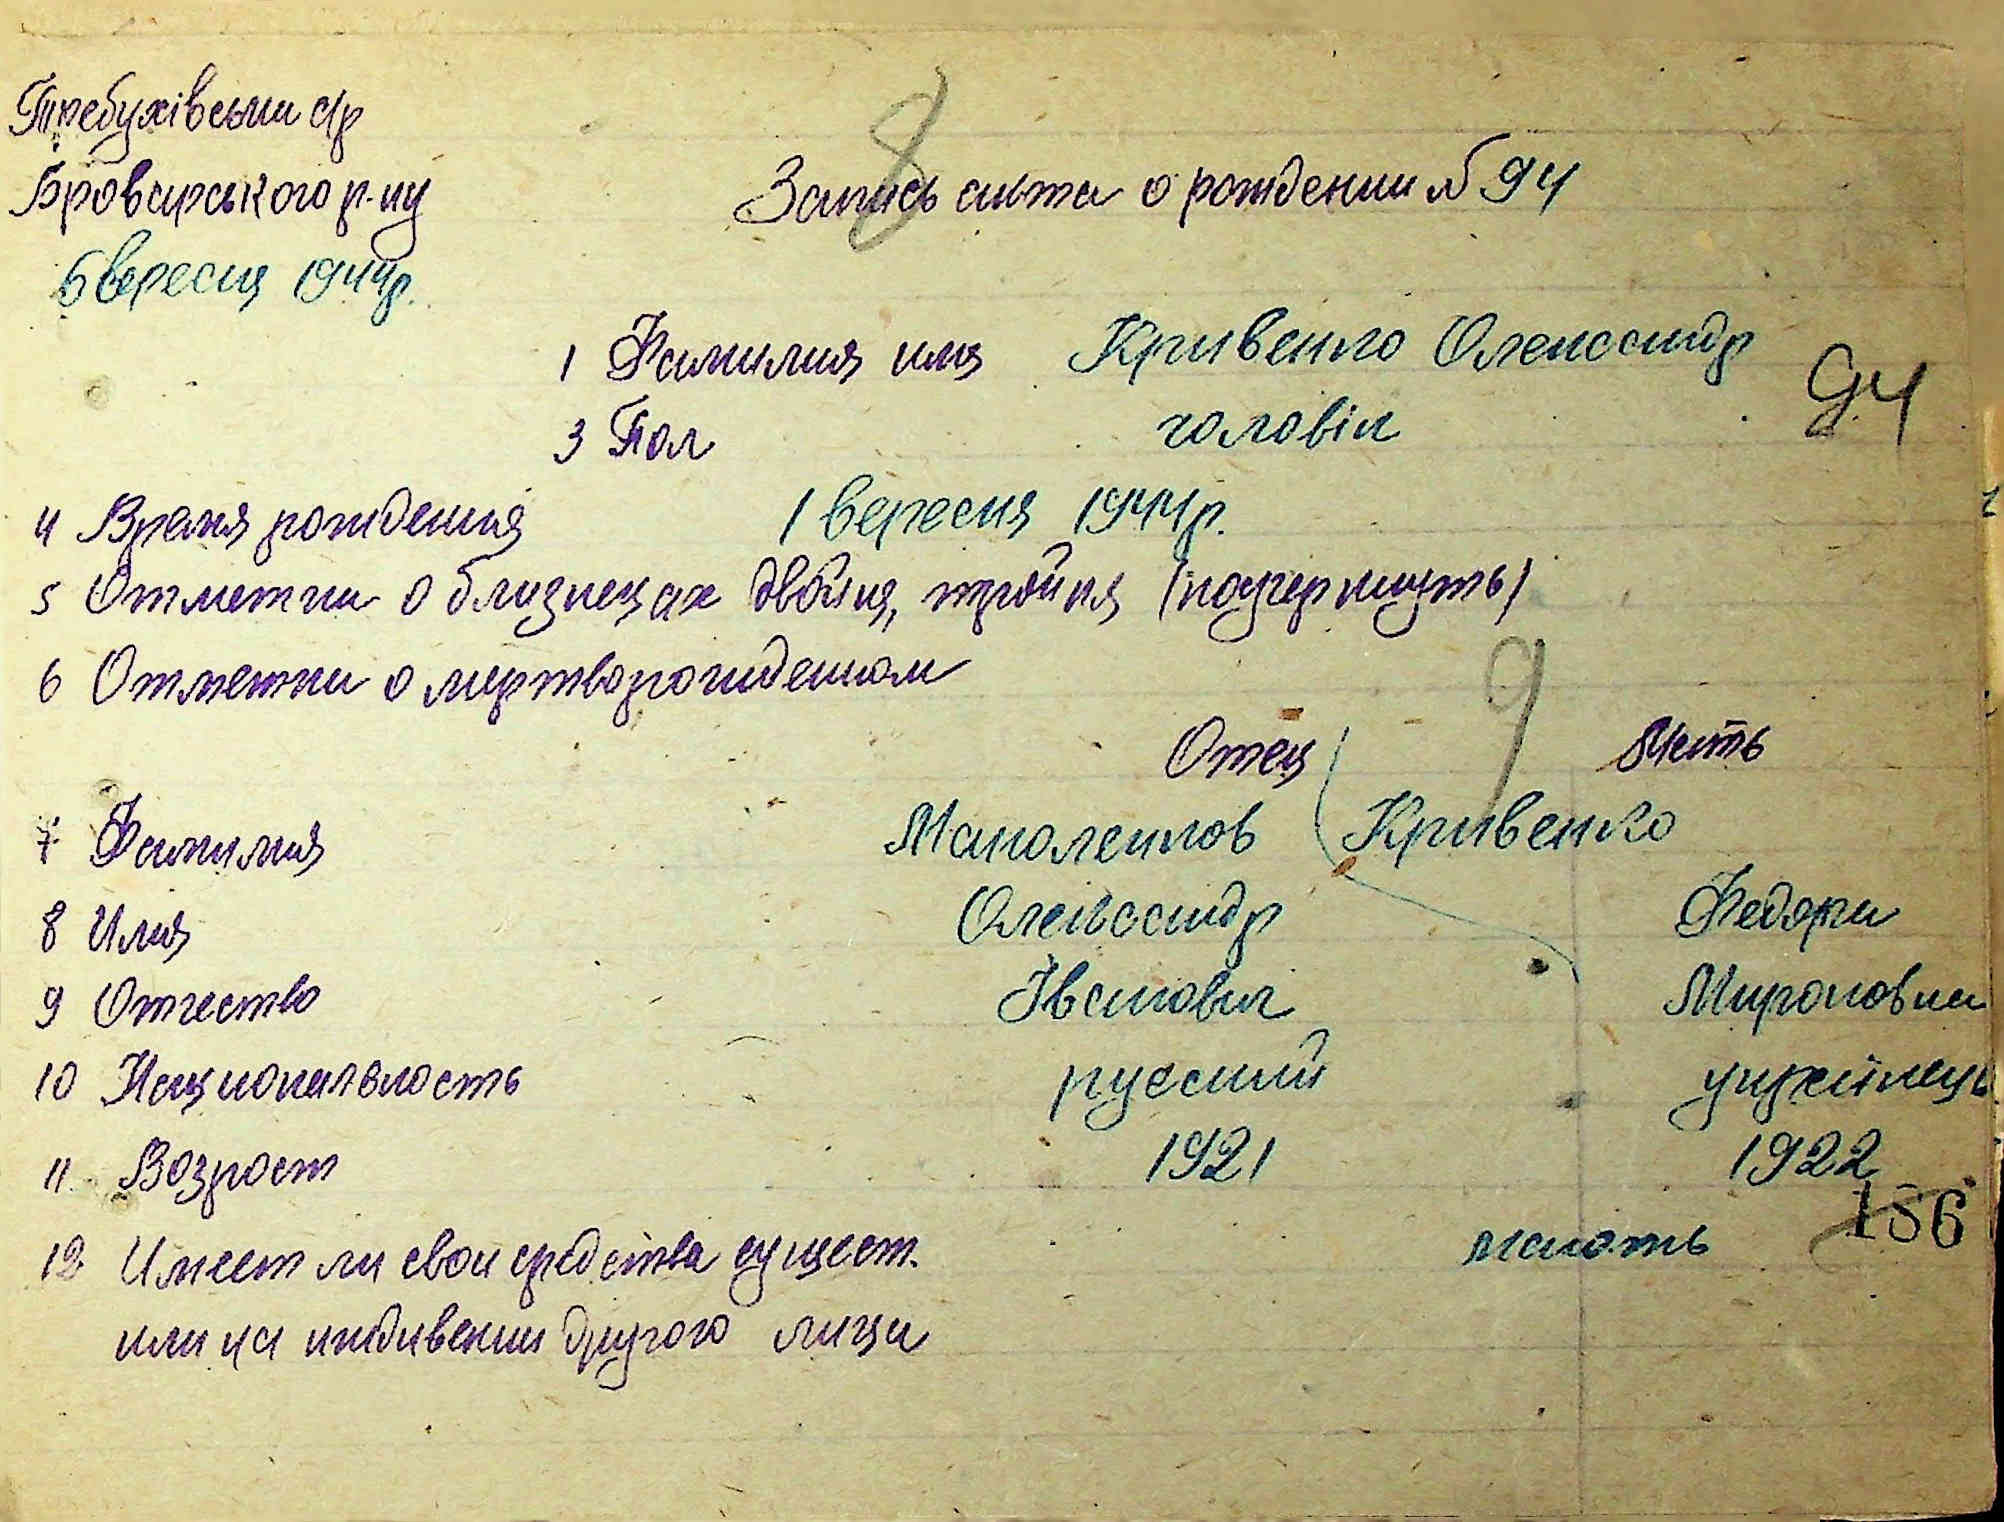 Требухівська с/р
Броварського р-ну
5 вересня 1944р.
8
Запись акта о рождении № 94
1 Фамилия имя Кривенко Олександр
94
3 Пол чоловік
4 Время рождения 1 вересня 1944р.
5 Отметки о близнецах двойня, тройня (подчеркнуть)
6 Отметки о мертворожденном
9
Отец Мать
7 Фамилия Маноленков Кривенко
8 Имя Олександр Федора
9 Отчество Іванович Мироновна
10 Национальность русский українець
11 Возраст 1921 1922
186
12 Имеет ли свои средства сущест. мають
или на иждивении другого лица